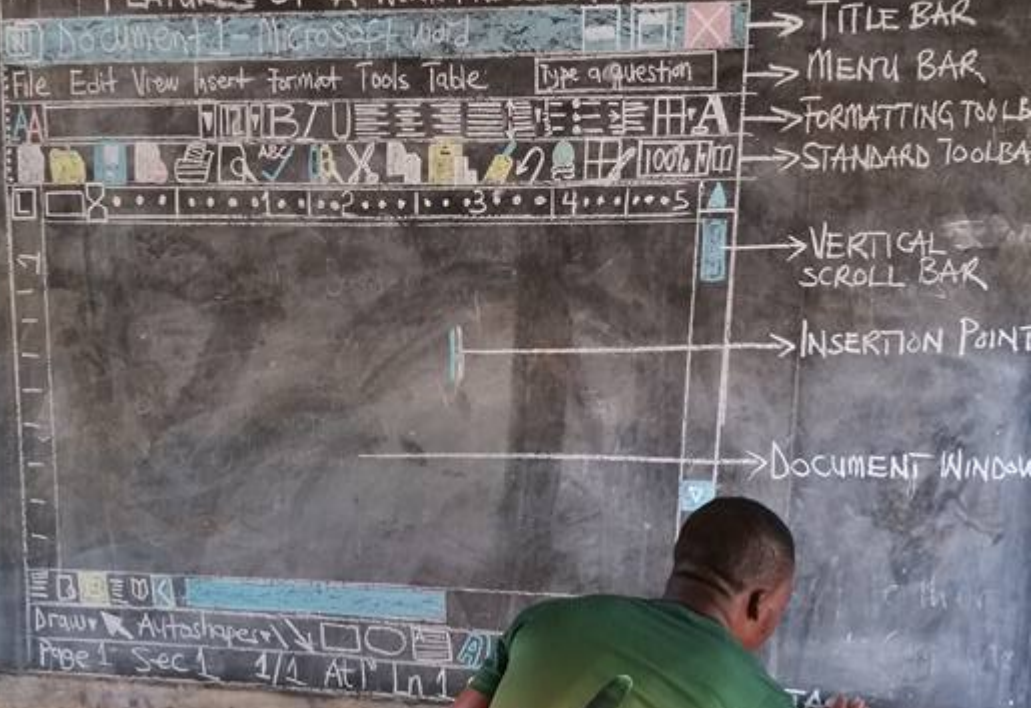 FEATURES OF A
W Document 1 - Microsoft word
TITLE BAR
File Edit View Insert Format Tools Table
Type a question
MENU BAR
AA 12 B I U A
FORMATTING TOOLB
ABC 100%
STANDARD TOOLBA
L 1 2 3 4 5
VERTICAL
SCROLL BAR
1
INSERTION POINT
DOCUMENT WINDOW
Draw Autoshapes A A
Page 1 Sec 1 1/1 At 1" Ln 1
TA